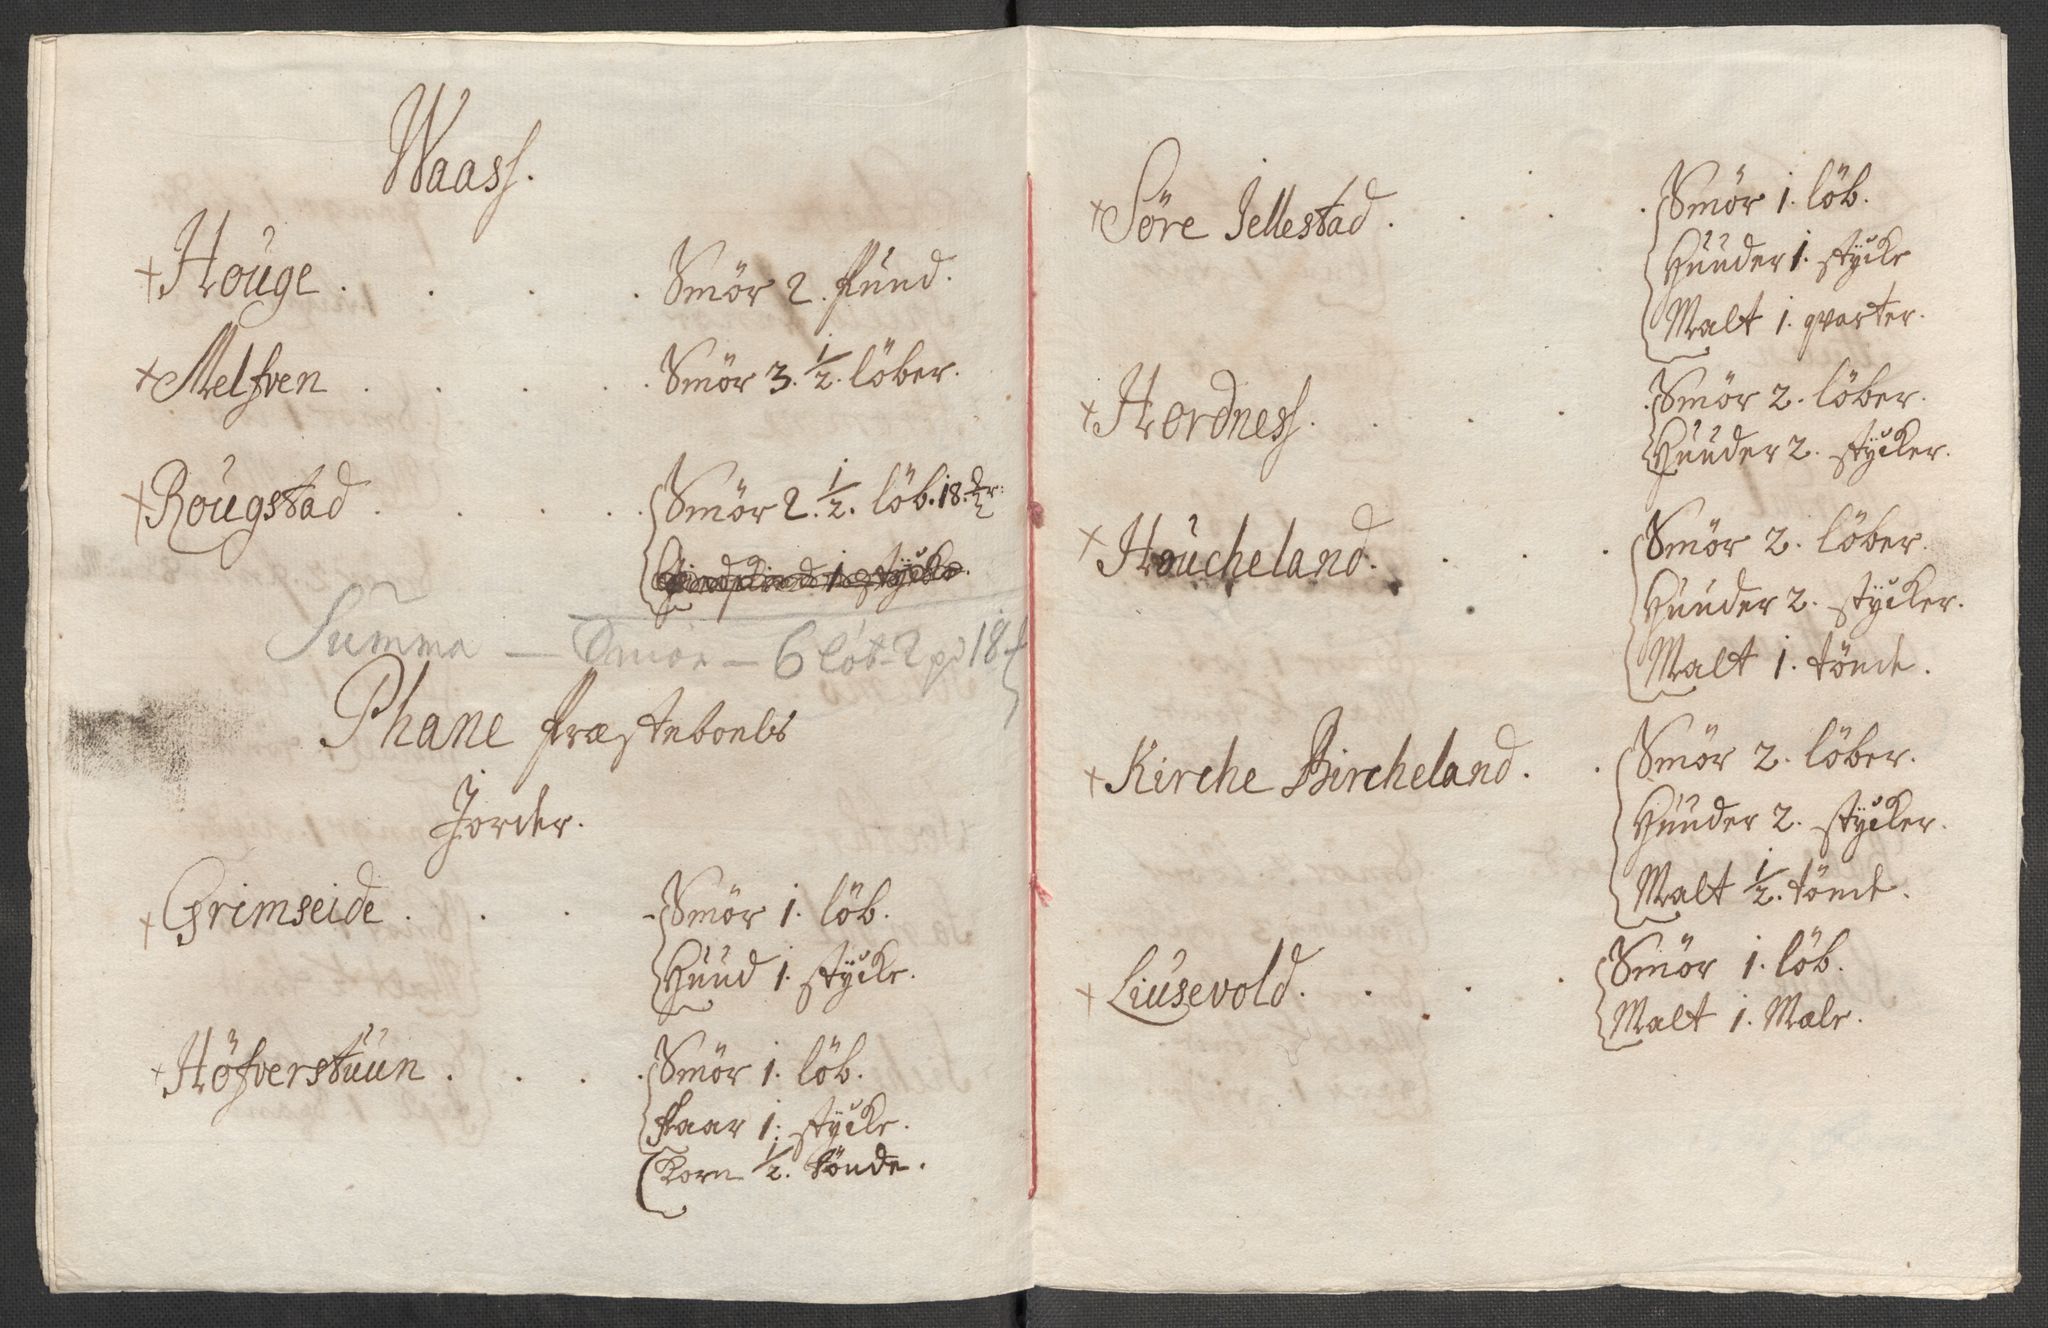 Waass.
+ Houge . . . . Smör 2. Pund.
+ Melfven . . . . Smör 3. 1/2. löber.
+ Rougstad . . . . Smör 2. 1/2. löb. 18.
1. stycke.
Summa — Smör — 6 löb 2 pd 18
Phane Præsteboels
Jorder.
+ Grimseide . . . Smör 1. löb.
Huud 1. stycke.
+ Höfverstuun . . . Smör 1. löb.
Faar 1. stycke.
Korn 1/2. tönde.
+ Söre Jellestad . . . . Smör 1. löb.
Huuder 1. stycke
Malt 1. qvarter.
+ Hordness . . . . Smör 2. löber.
Huuder 2. stycker.
+ Houcheland . . . . Smör 2. löber.
Huuder 2. stycker.
Malt 1. tönde.
+ Kirche Bircheland . . Smör 2. löber.
Huuder 2. stycker.
Malt 1/2. tönde.
+ Liusevold . . . . Smör 1. löb.
Malt 1. Male.